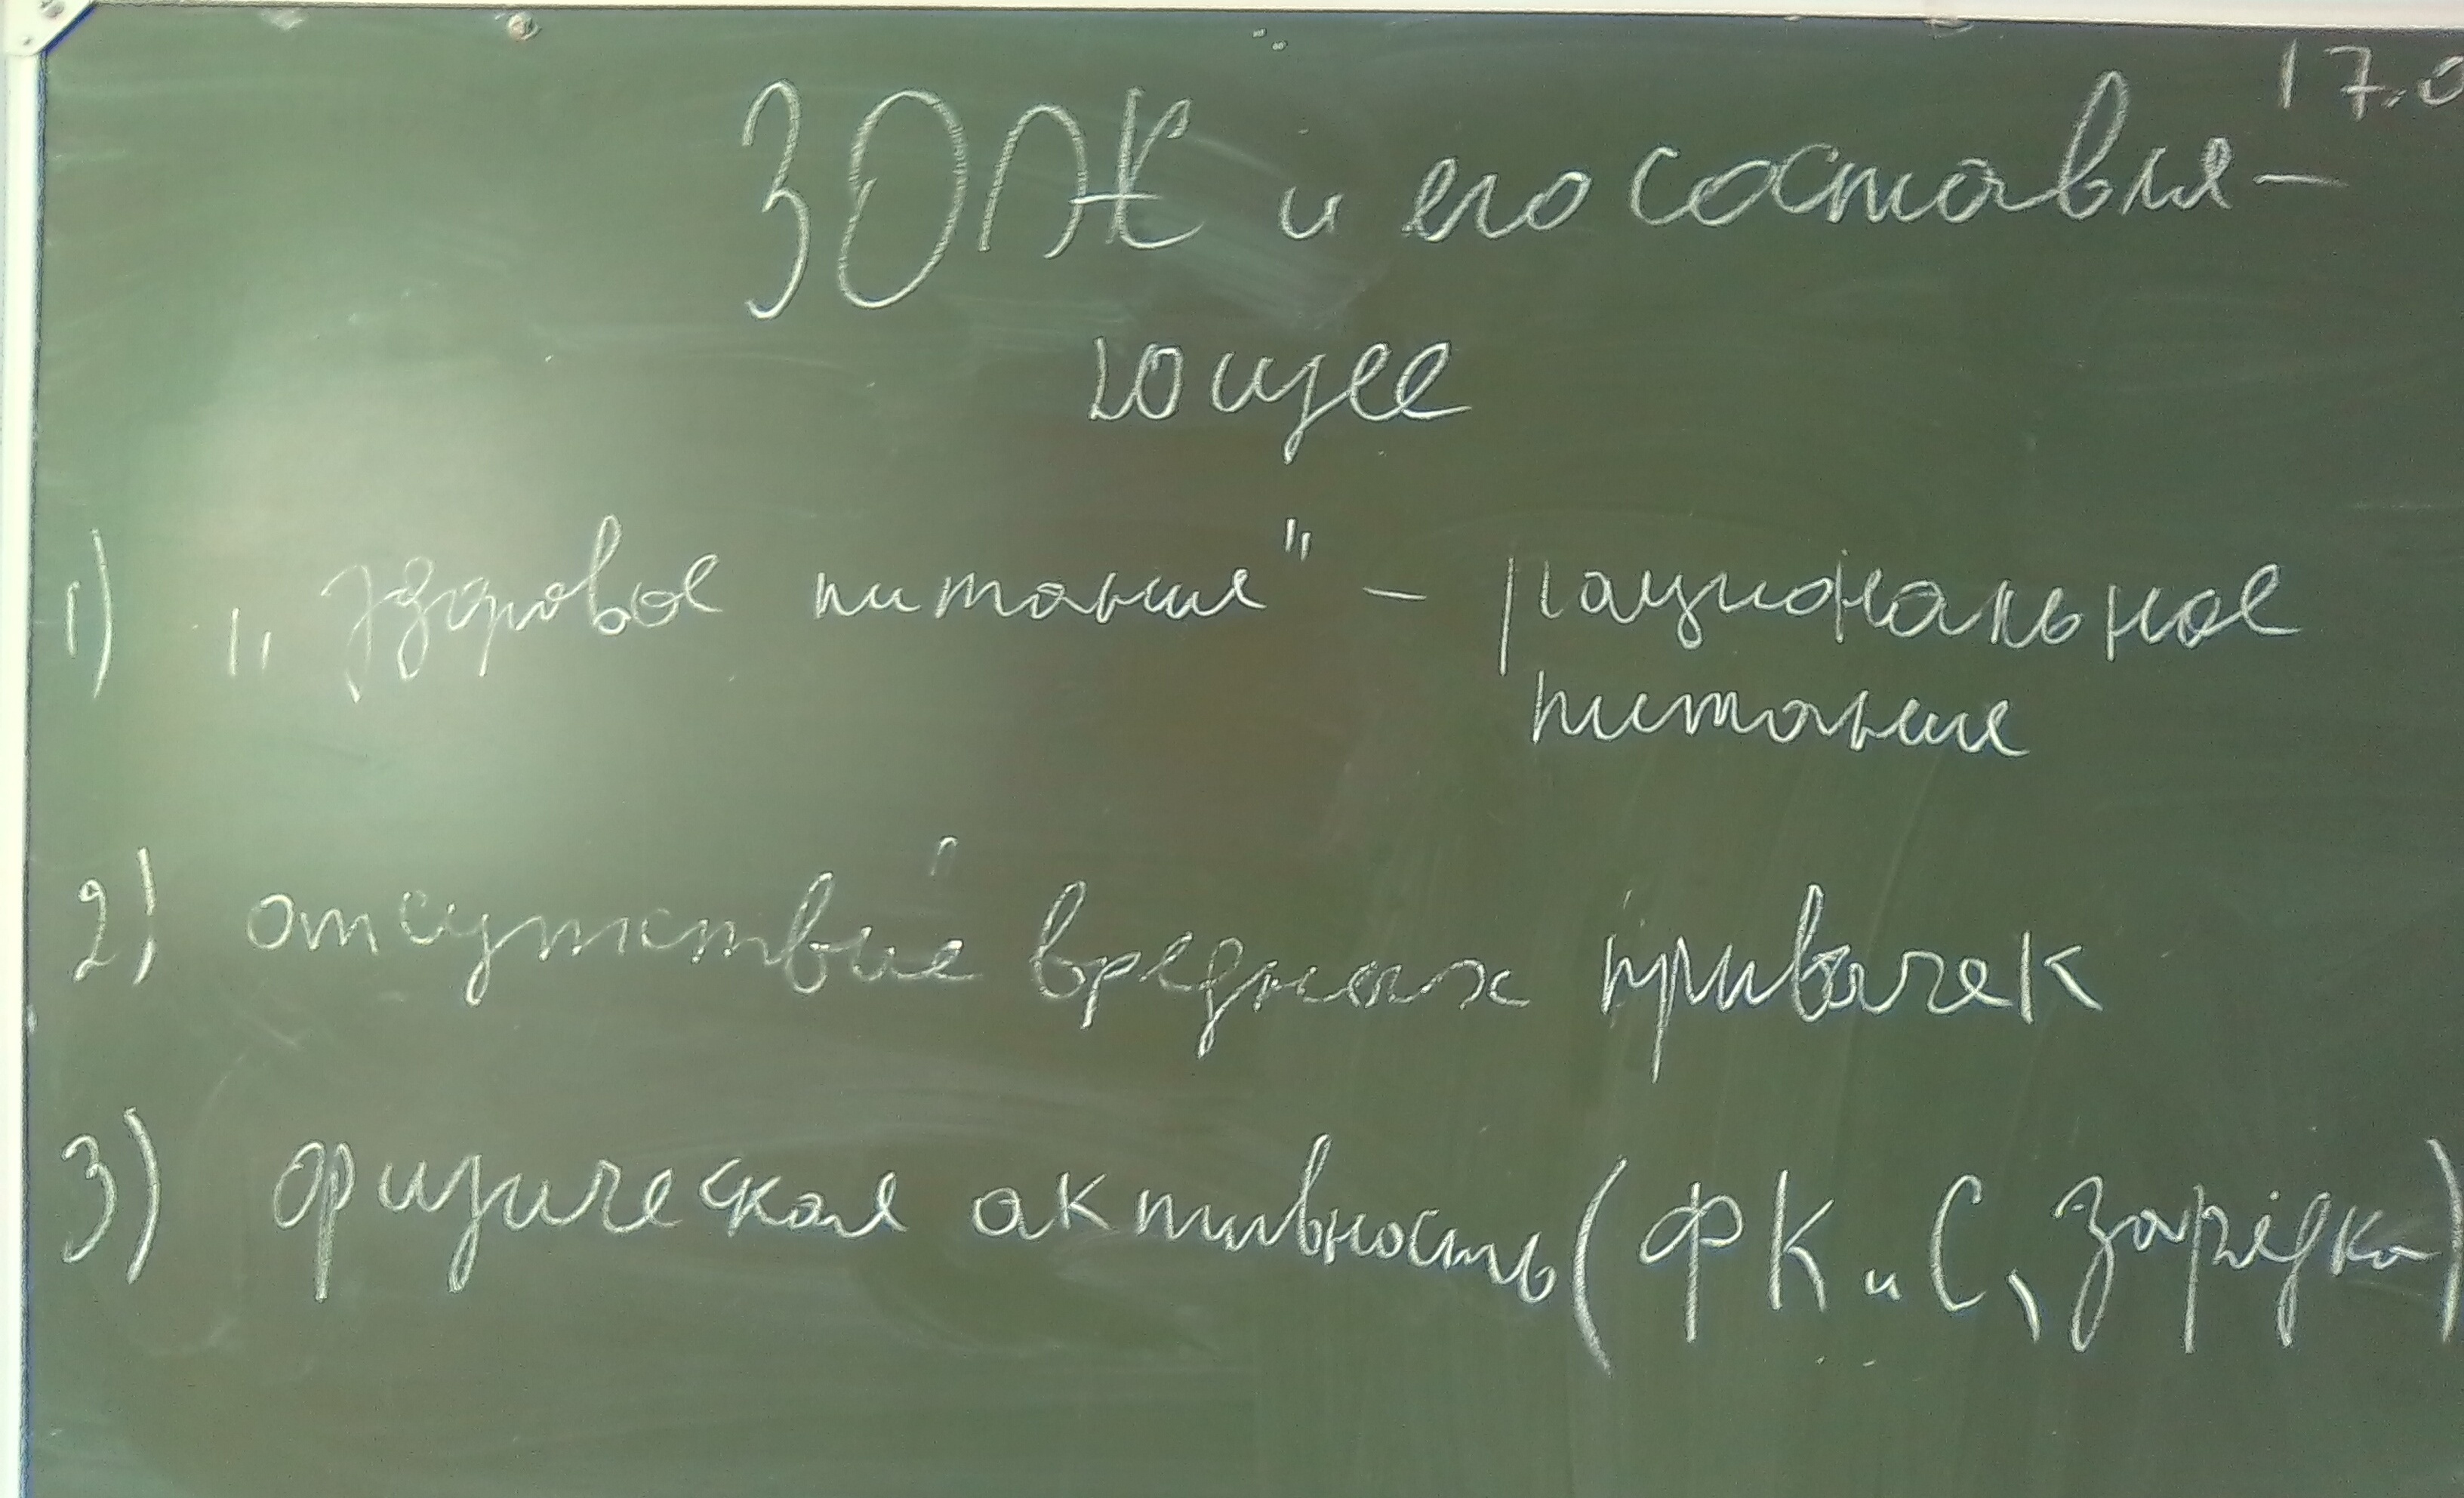 17.0
ЗОЖ и его составля-
ющее
1) „здоровое питание" - рациональное
питание
2) отсутствие вредных привычек
3) физическая активность (ФК и С, зарядка)